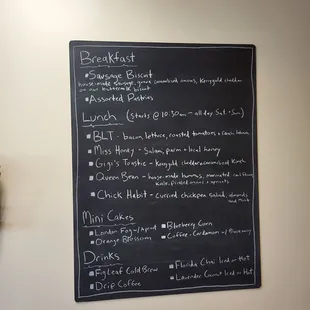 Breakfast
Sausage Biscuit
house-made sausage, caramelized onions, Kerrygold cheddar
on our buttermilk biscuit
Assorted Pastries
Lunch (Starts @ 10:30am - all day Sat + Sun)
BLT - bacon, lettuce, roasted tomatoes +
Miss Honey - Salami, parm + local honey
Gigi's Toastie - Kerrygold cheddar + caramelized
Queen Bean - house-made hummus, marinated
kale, pickled onions + sprouts
Chick Habit - curried chickpea salad, almonds,
Mini Cakes
London Fog
Blueberry Corn
Orange Blossom
Coffee-Cardamom
Drinks
Fig Leaf Cold Brew
Florida Chai Iced or Hot
Drip Coffee
Lavender Iced or Hot